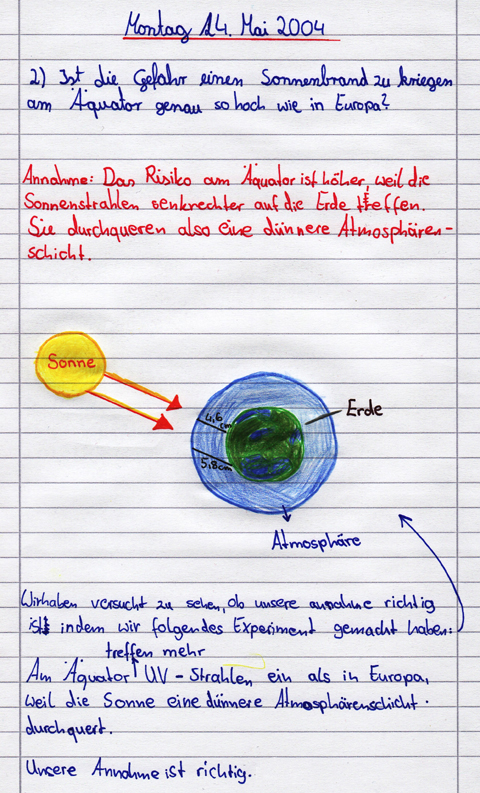 Montag 14. Mai 2004
2) Ist die Gefahr einen Sonnenbrand zu kriegen
am Äquator genau so hoch wie in Europa?
Annahme: Das Risiko am Äquator ist höher, weil die
Sonnenstrahlen senkrechter auf die Erde treffen.
Sie durchqueren also eine dünnere Atmosphären-
schicht.
Sonne
4,6
cm
Erde
5,8cm
Atmosphäre
Wir haben versucht zu sehen, ob unsere annahme richtig
ist indem wir folgendes Experiment gemacht haben:
treffen mehr
Am Äquator UV-Strahlen ein als in Europa,
weil die Sonne eine dünnere Atmosphärenschicht
durchquert.
Unsere Annahme ist richtig.